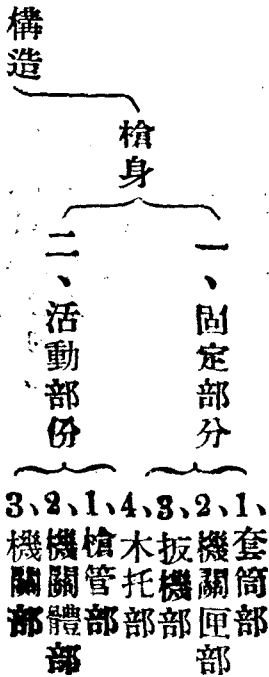 構造
槍身
一、固定部分
1、套筒部
2、機關匣部
3、扳機部
4、木托部
二、活動部份
1、槍管部
2、機關體部
3、機關部